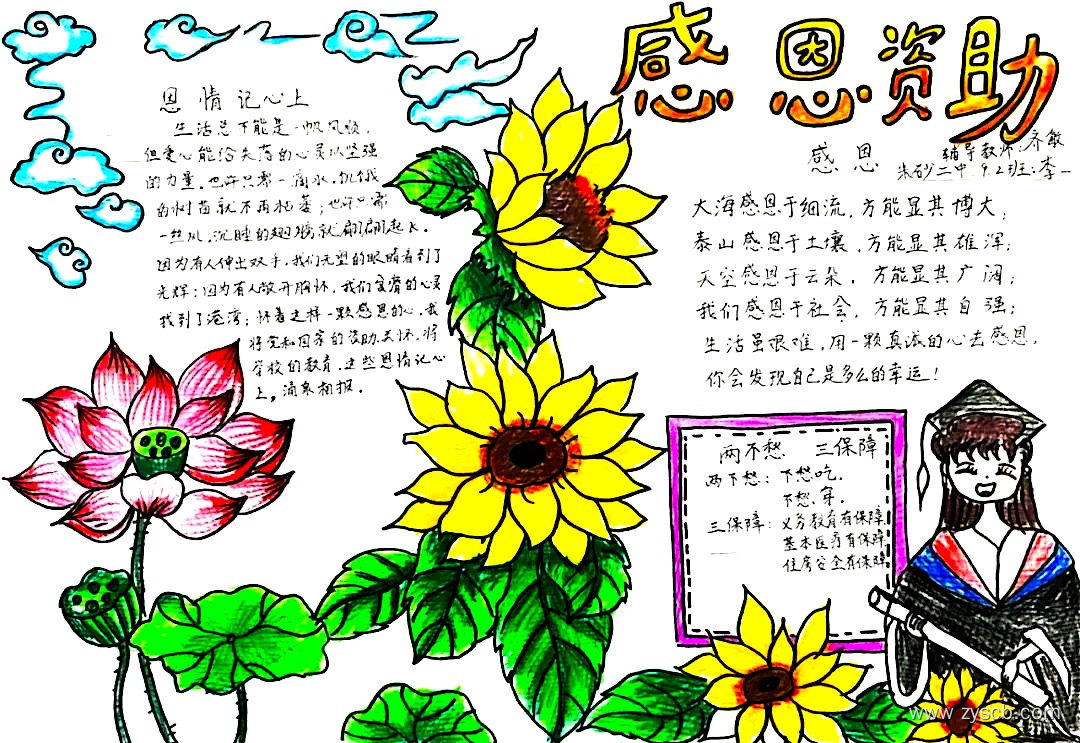 感恩资助
恩情记心上
生活总不能是一帆风顺，
但爱心能给失落的心灵以坚强
的力量。也许只需一滴水，饥饿
的树苗就不再枯萎；也许只需
一丝风，沉睡的翅膀就翩翩起飞。
因为有人伸出双手，我们无望的眼睛看到了
光辉；因为有人敞开胸怀，我们的心灵
找到了港湾；怀着这样一颗感恩的心，我
将党和国家的资助关怀，将
学校的教育，这些恩情记心
上，涌泉相报。
感恩
辅导教师：齐敏
朱砂二中 9.2班：李一
大海感恩于细流，方能显其博大；
泰山感恩于土壤，方能显其雄浑；
天空感恩于云朵，方能显其广阔；
我们感恩于社会，方能显其自强；
生活虽艰难，用一颗真诚的心去感恩，
你会发现自己是多么的幸运！
两不愁 三保障
两不愁：不愁吃，
不愁穿。
三保障：义务教育有保障
基本医疗有保障
住房安全有保障
www.zyscb.com